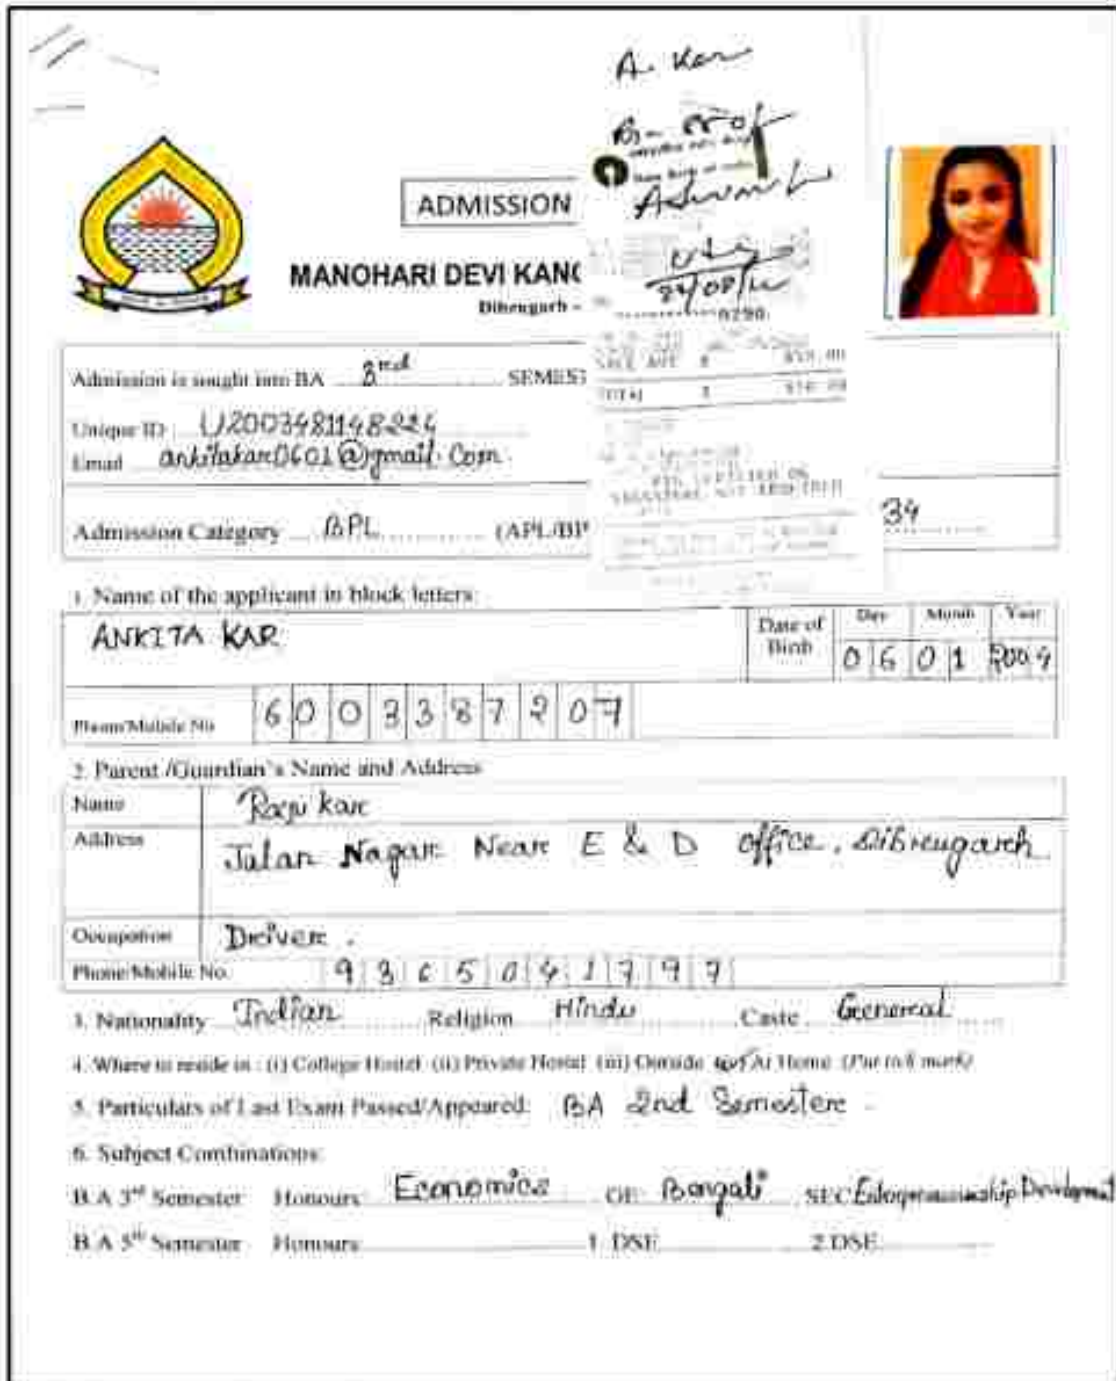 A. Kar
ADMISSION
MANOHARI DEVI KANO
Dibrugarh -
24/08/
0290
Admission is sought into BA 3rd SEMEST
Unique ID U2003481148224
Email ankitakar0601@gmail.com
Admission Category BPL (APL/BP
34
1. Name of the applicant in block letters:
ANKITA KAR
Date of Birth
Day Month Year
06 01 2004
Phone/Mobile No 6003387207
2. Parent /Guardian's Name and Address
Name Raju kar
Address Jalan Nagar Near E & D office, Dibrugarh
Occupation Driver.
Phone/Mobile No.
3. Nationality Indian Religion Hindu Caste General
4. Where to reside in : (i) College Hostel (ii) Private Hostel (iii) Outside (iv) At Home (Put tick mark)
5. Particulars of Last Exam Passed/Appeared: BA 2nd Semester
6. Subject Combinations:
B.A 3rd Semester Honours Economics GE: Bengali SEC Entrepreneurship Development
B.A 5th Semester Honours 1. DSE 2. DSE